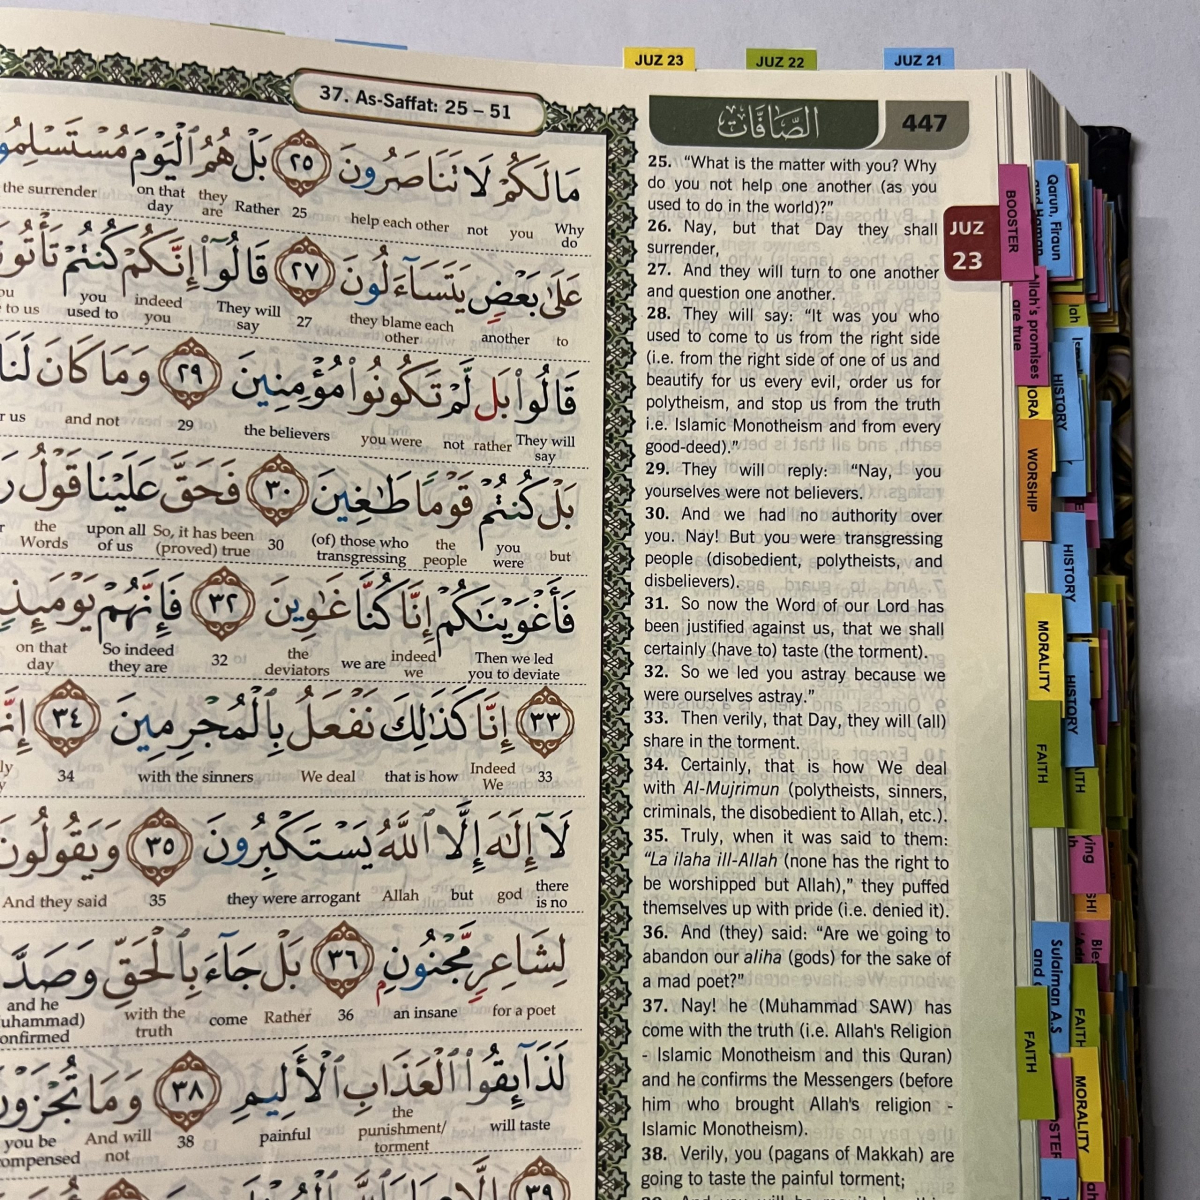 JUZ 23
JUZ 22
JUZ 21
37. As-Saffat: 25 – 51
مَا لَكُمْ لَا تَنَاصَرُونَ ٢٥ بَلْ هُمُ الْيَوْمَ
Why do
you
not
help each other
25
Rather
they are
on that day
the surrender
عَلَىٰ بَعْضٍ يَتَسَاءَلُونَ ٢٧ قَالُوا إِنَّكُمْ كُنتُمْ
to
another
they blame each other
27
They will say
indeed you
you used to
to us
قَالُوا بَل لَّمْ تَكُونُوا مُؤْمِنِينَ ٢٩ وَمَا كَانَ
They will say
rather
not
you were
the believers
29
and not
بَلْ كُنتُمْ قَوْمًا طَاغِينَ ٣٠ فَحَقَّ عَلَيْنَا قَوْلُ
but
you were
the people
(of) those who transgressing
30
So, it has been (proved) true
upon all of us
the Words
فَأَغْوَيْنَاكُمْ إِنَّا كُنَّا غَاوِينَ ٣٢ فَإِنَّهُمْ يَوْمَئِذٍ
Then we led you to deviate
indeed we
we are
the deviators
32
So indeed they are
on that day
٣٣ إِنَّا كَذَٰلِكَ نَفْعَلُ بِالْمُجْرِمِينَ ٣٤
33
Indeed We
that is how
We deal
with the sinners
34
لَا إِلَٰهَ إِلَّا اللَّهُ يَسْتَكْبِرُونَ ٣٥ وَيَقُولُونَ
there is no
god
but
Allah
they were arrogant
35
And they said
لِشَاعِرٍ مَّجْنُونٍ ٣٦ بَلْ جَاءَ بِالْحَقِّ وَصَدَّ
for a poet
an insane
36
Rather
come
with the truth
and he
لَذَائِقُو الْعَذَابِ الْأَلِيمِ ٣٨ وَمَا تُجْزَوْنَ
will taste
the punishment/ torment
painful
38
And will not
you be
٣٩
الصَّافَّات
447
25. "What is the matter with you? Why
do you not help one another (as you
used to do in the world)?"
26. Nay, but that Day they shall
surrender,
27. And they will turn to one another
and question one another.
28. They will say: "It was you who
used to come to us from the right side
(i.e. from the right side of one of us and
beautify for us every evil, order us for
polytheism, and stop us from the truth
i.e. Islamic Monotheism and from every
good-deed)."
29. They will reply: "Nay, you
yourselves were not believers.
30. And we had no authority over
you. Nay! But you were transgressing
people (disobedient, polytheists, and
disbelievers).
31. So now the Word of our Lord has
been justified against us, that we shall
certainly (have to) taste (the torment).
32. So we led you astray because we
were ourselves astray."
33. Then verily, that Day, they will (all)
share in the torment.
34. Certainly, that is how We deal
with Al-Mujrimun (polytheists, sinners,
criminals, the disobedient to Allah, etc.).
35. Truly, when it was said to them:
"La ilaha ill-Allah (none has the right to
be worshipped but Allah)," they puffed
themselves up with pride (i.e. denied it).
36. And (they) said: "Are we going to
abandon our aliha (gods) for the sake of
a mad poet?"
37. Nay! he (Muhammad SAW) has
come with the truth (i.e. Allah's Religion
- Islamic Monotheism and this Quran)
and he confirms the Messengers (before
him who brought Allah's religion -
Islamic Monotheism).
38. Verily, you (pagans of Makkah) are
going to taste the painful torment;
JUZ
23
BOOSTER
Qarun, Firaun
and Haman
Allah's promises
are true
HISTORY
WORSHIP
HISTORY
MORALITY
HISTORY
FAITH
Sulaiman A.S
FAITH
FAITH
MORALITY